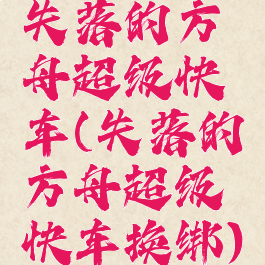 失落的方
舟超级快
车(失落的
方舟超级
快车换绑)